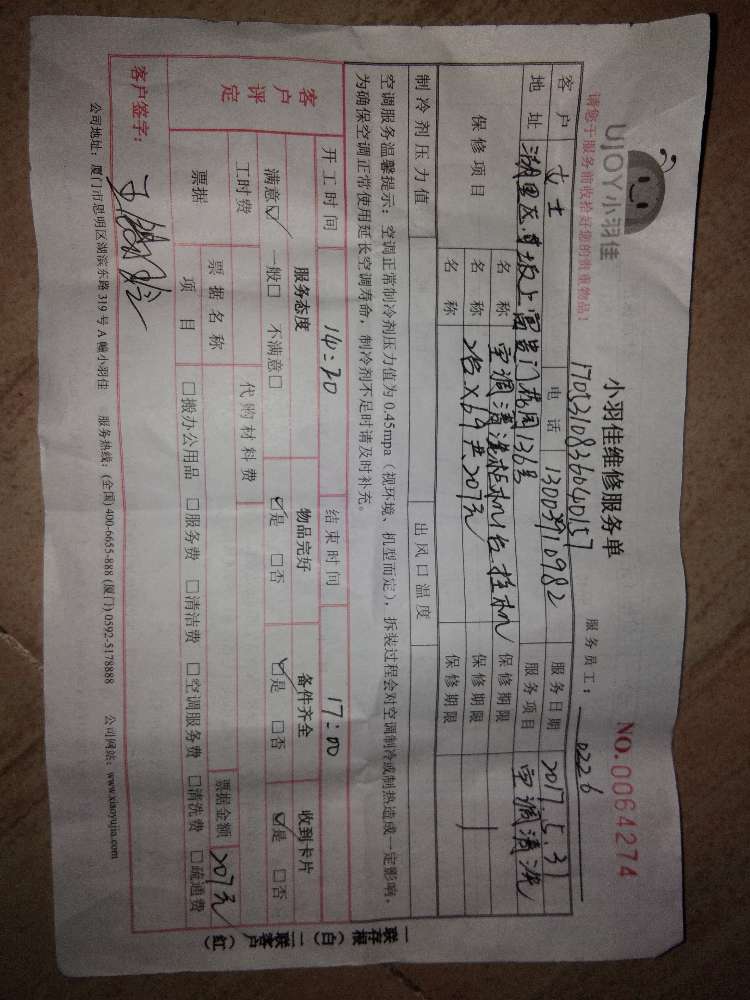 UJOY小羽佳
小羽佳维修服务单
NO.0064274
请您于服务前收拾好您的贵重物品!
1705310836040157
服务员工: 0226
客户 女士 电话 13003910982 服务日期 2017.5.31
地址 湖里区 坂上富贵门花园131号 服务项目 空调清洗
保修项目 名称 空调清洗柜机 台 挂机 保修期限
名称 2台×69 207元 保修期限
名称 保修期限
制冷剂压力值 出风口温度
空调服务温馨提示:空调正常制冷剂压力值为0.45mpa(视环境、机型而定),拆装过程会对空调制冷或制热造成一定影响,
为确保空调正常使用延长空调寿命,制冷剂不足时请及时补充。
开工时间 14:20 结束时间 17:00
客户评定 服务态度 物品完好 备件齐全 收到卡片
满意☑ 一般□ 不满意□ ☑是 □否 ☑是 □否 ☑是 □否
工时费 代购材料费
票据 票据名称 票据金额 207元
项目 □搬办公用品 □服务费 □清洁费 □空调服务费 □清洗费 □疏通费
客户签字:
公司地址:厦门市思明区湖滨东路319号A幢小羽佳 服务热线:(全国)400-6655-888 (厦门)0592-5178888 公司网站:www.xiaoyujia.com
一联存根(白) 二联客户(红)